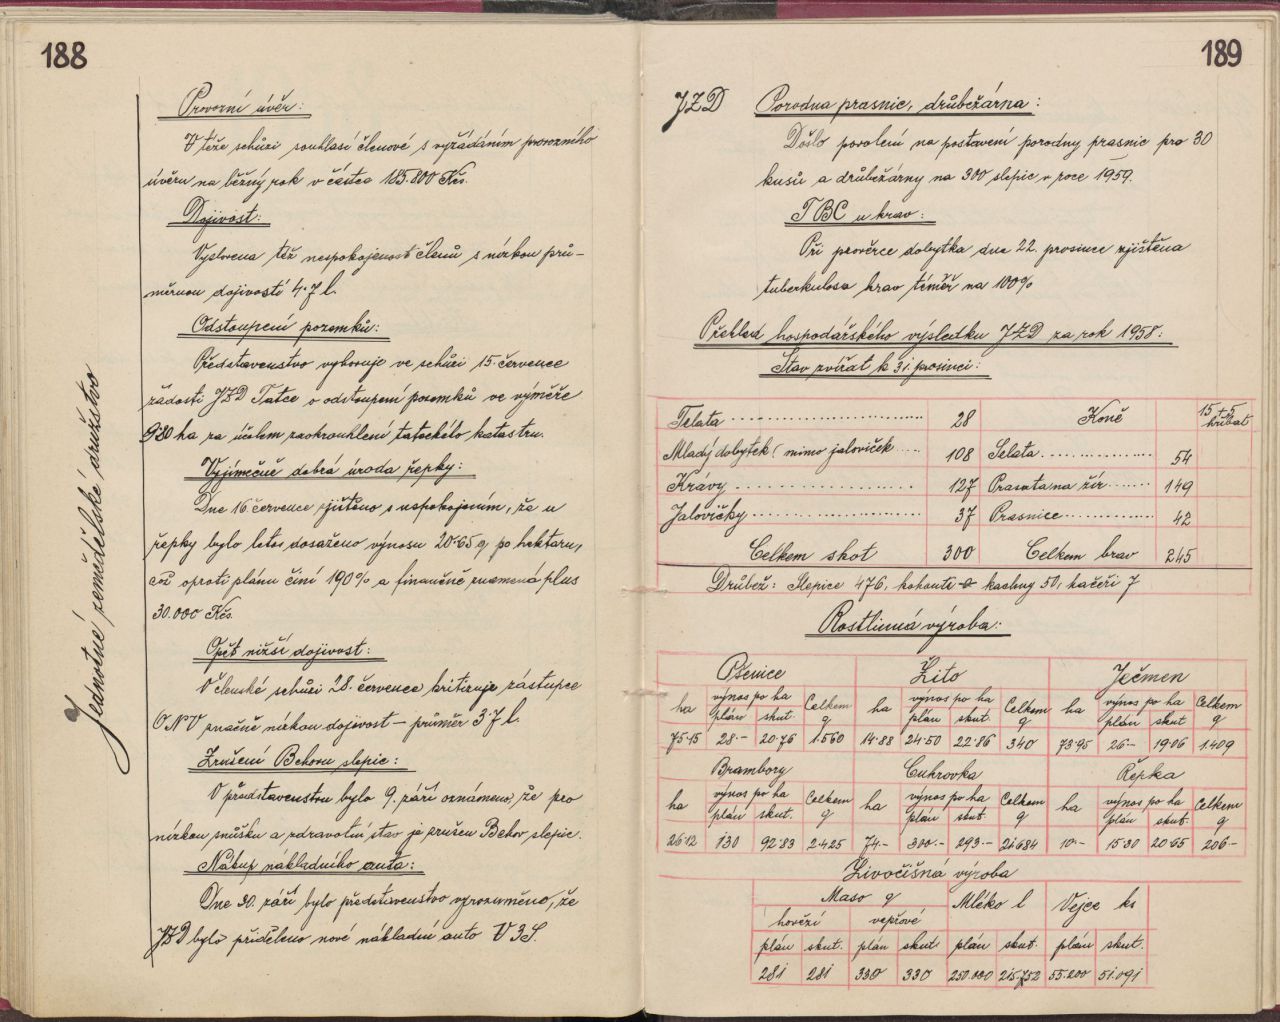 188
Jednotné zemědělské družstvo
Provozní úvěr:
V téže schůzi souhlasí členové s vyžádáním provozního
úvěru na běžný rok v částce 185.800 Kčs.
Dojivost:
Vyslovena též nespokojenost členů s nízkou prů-
měrnou dojivostí 4·7 l.
Odstoupení pozemků:
Představenstvo vyhovuje ve schůzi 15. července
žádosti JZD Tatce o odstoupení pozemků ve výměře
9·80 ha za účelem zaokrouhlení tateckého katastru.
Vyjímečně dobrá úroda řepky:
Dne 16. července zjištěno s uspokojením, že u
řepky bylo letos dosaženo výnosu 20·65 q po hektaru,
což oproti plánu činí 190% a finančně znamená plus
30.000 Kčs.
Opět nižší dojivost:
V členské schůzi 28. července kritizuje zástupce
ONV značně nízkou dojivost – průměr 3·7 l.
Zrušení Behovu slepic:
V představenstvu bylo 9. září oznámeno, že pro
nízkou snůšku a zdravotní stav je zrušen Behov slepic.
Nákup nákladního auta:
Dne 30. září bylo představenstvo vyrozuměno, že
JZD bylo přiděleno nové nákladní auto V3S.
189
JZD Porodna prasnic, drůbežárna:
Došlo povolení na postavení porodny prasnic pro 30
kusů a drůbežárny na 300 slepic v roce 1959.
TBC u krav:
Při prověrce dobytka dne 22. prosince zjištěna
tuberkulosa krav téměř na 100%
Přehled hospodářského výsledku JZD za rok 1958:
Stav zvířat k 31. prosinci:
Telata 28 Koně 15 + 5 hříbat
Mladý dobytek (mimo jaloviček 108 Selata 54
Krávy 127 Prasata na žír 149
Jalovičky 37 Prasnice 42
Celkem skot 300 Celkem brav 245
Drůbež: Slepice 476, kohouti a kachny 50, kačeři 7
Rostlinná výroba:
Pšenice Žito Ječmen
ha výnos po ha Celkem q ha výnos po ha Celkem q ha výnos po ha Celkem q
plán skut. plán skut. plán skut
75·15 28·– 20·76 1.560 14·88 24·50 22·86 340 73·95 26·– 19·06 1.409
Brambory Cukrovka Řepka
ha výnos po ha Celkem q ha výnos po ha Celkem q ha výnos po ha Celkem q
plán skut. plán skut. plán skut.
26·12 130 92·83 2.425 74·– 300·– 293·– 21.684 10·– 15·30 20·65 206·–
Živočišná výroba
Maso q Mléko l Vejce ks
hovězí vepřové
plán skut. plán skut. plán skut. plán skut.
281 281 330 330 250.000 215.752 55.200 51.091